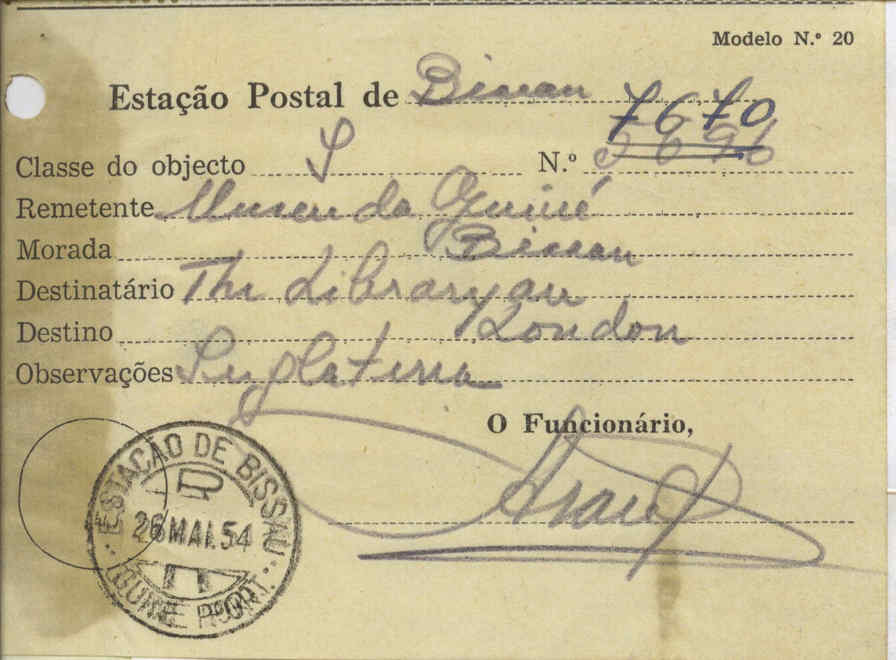 Modelo N.º 20
Estação Postal de Bissau
7670
Classe do objecto S N.º 5696
Remetente Museu da Guiné
Morada Bissau
Destinatário The Libraryan
Destino London
Observações Inglaterra
O Funcionário,
ESTAÇÃO DE BISSAU
26 MAI. 54
GUINÉ PORT.